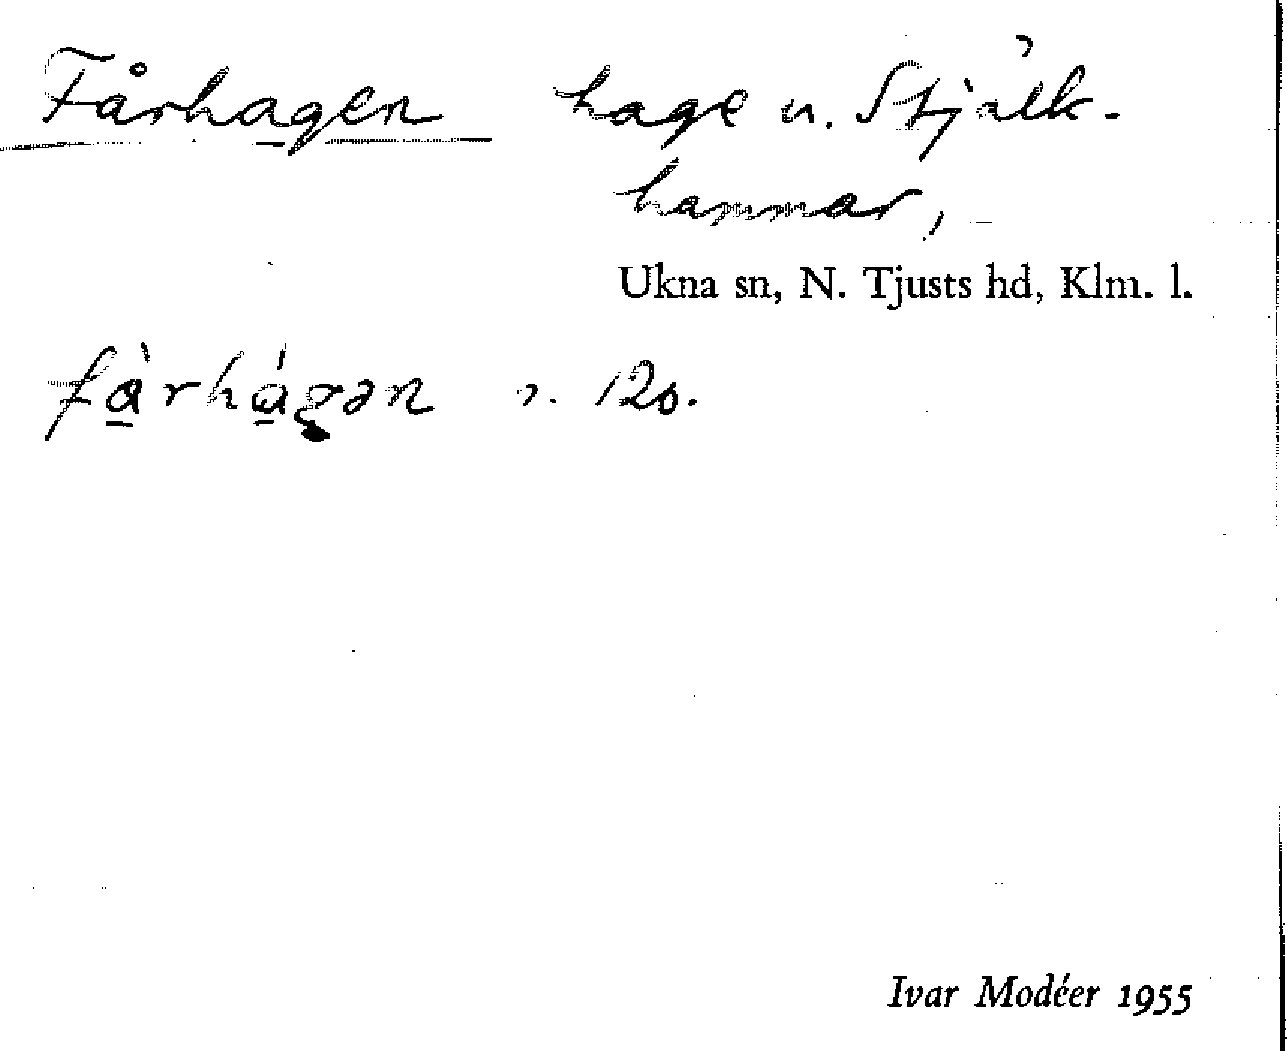 Fårhagen hage u. Stjälk-
hammar,
Ukna sn, N. Tjusts hd, Klm. l.
fà̱rhá̱gən s. 120.
Ivar Modéer 1955